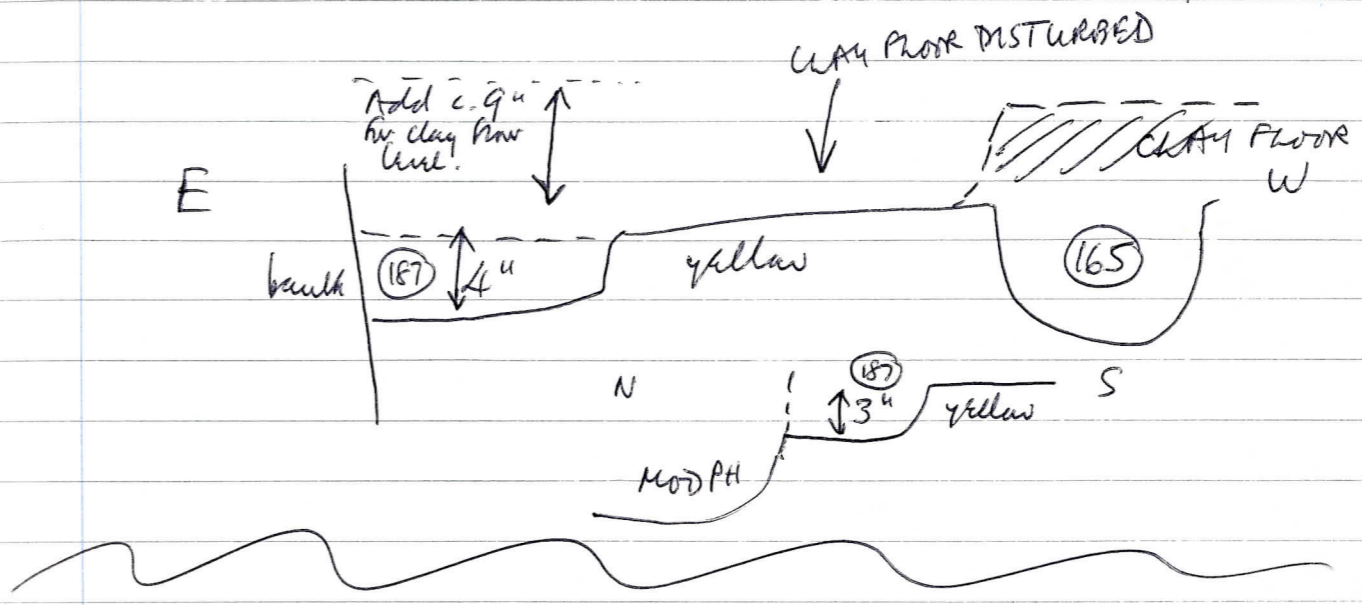 CLAY FLOOR DISTURBED
Add c. 9"
for clay floor
level.
CLAY FLOOR
E
W
baulk
187
4"
yellow
165
N
187
3"
yellow
S
MOD PH